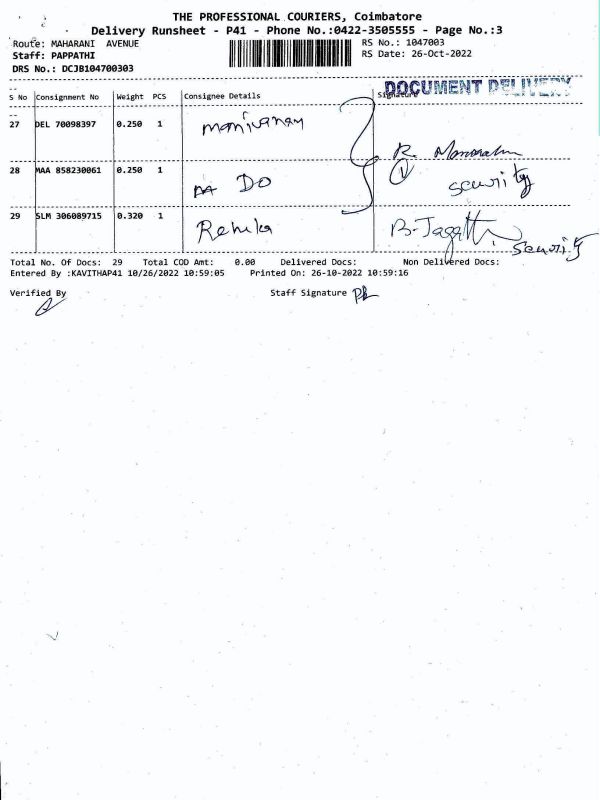 THE PROFESSIONAL COURIERS, Coimbatore
Delivery Runsheet - P41 - Phone No.:0422-3505555 - Page No.:3
Route: MAHARANI AVENUE
RS No.: 1047003
Staff: PAPPATHI
RS Date: 26-Oct-2022
DRS No.: DCJB104700303
DOCUMENT DELIVERY
S No Consignment No Weight PCS Consignee Details Signature
27 DEL 70098397 0.250 1 manivanan
R.
28 MAA 858230061 0.250 1 Do security
29 SLM 306089715 0.320 1 Renuka B. security
Total No. Of Docs: 29 Total COD Amt: 0.00 Delivered Docs: Non Delivered Docs:
Entered By :KAVITHAP41 10/26/2022 10:59:05 Printed On: 26-10-2022 10:59:16
Verified By Staff Signature